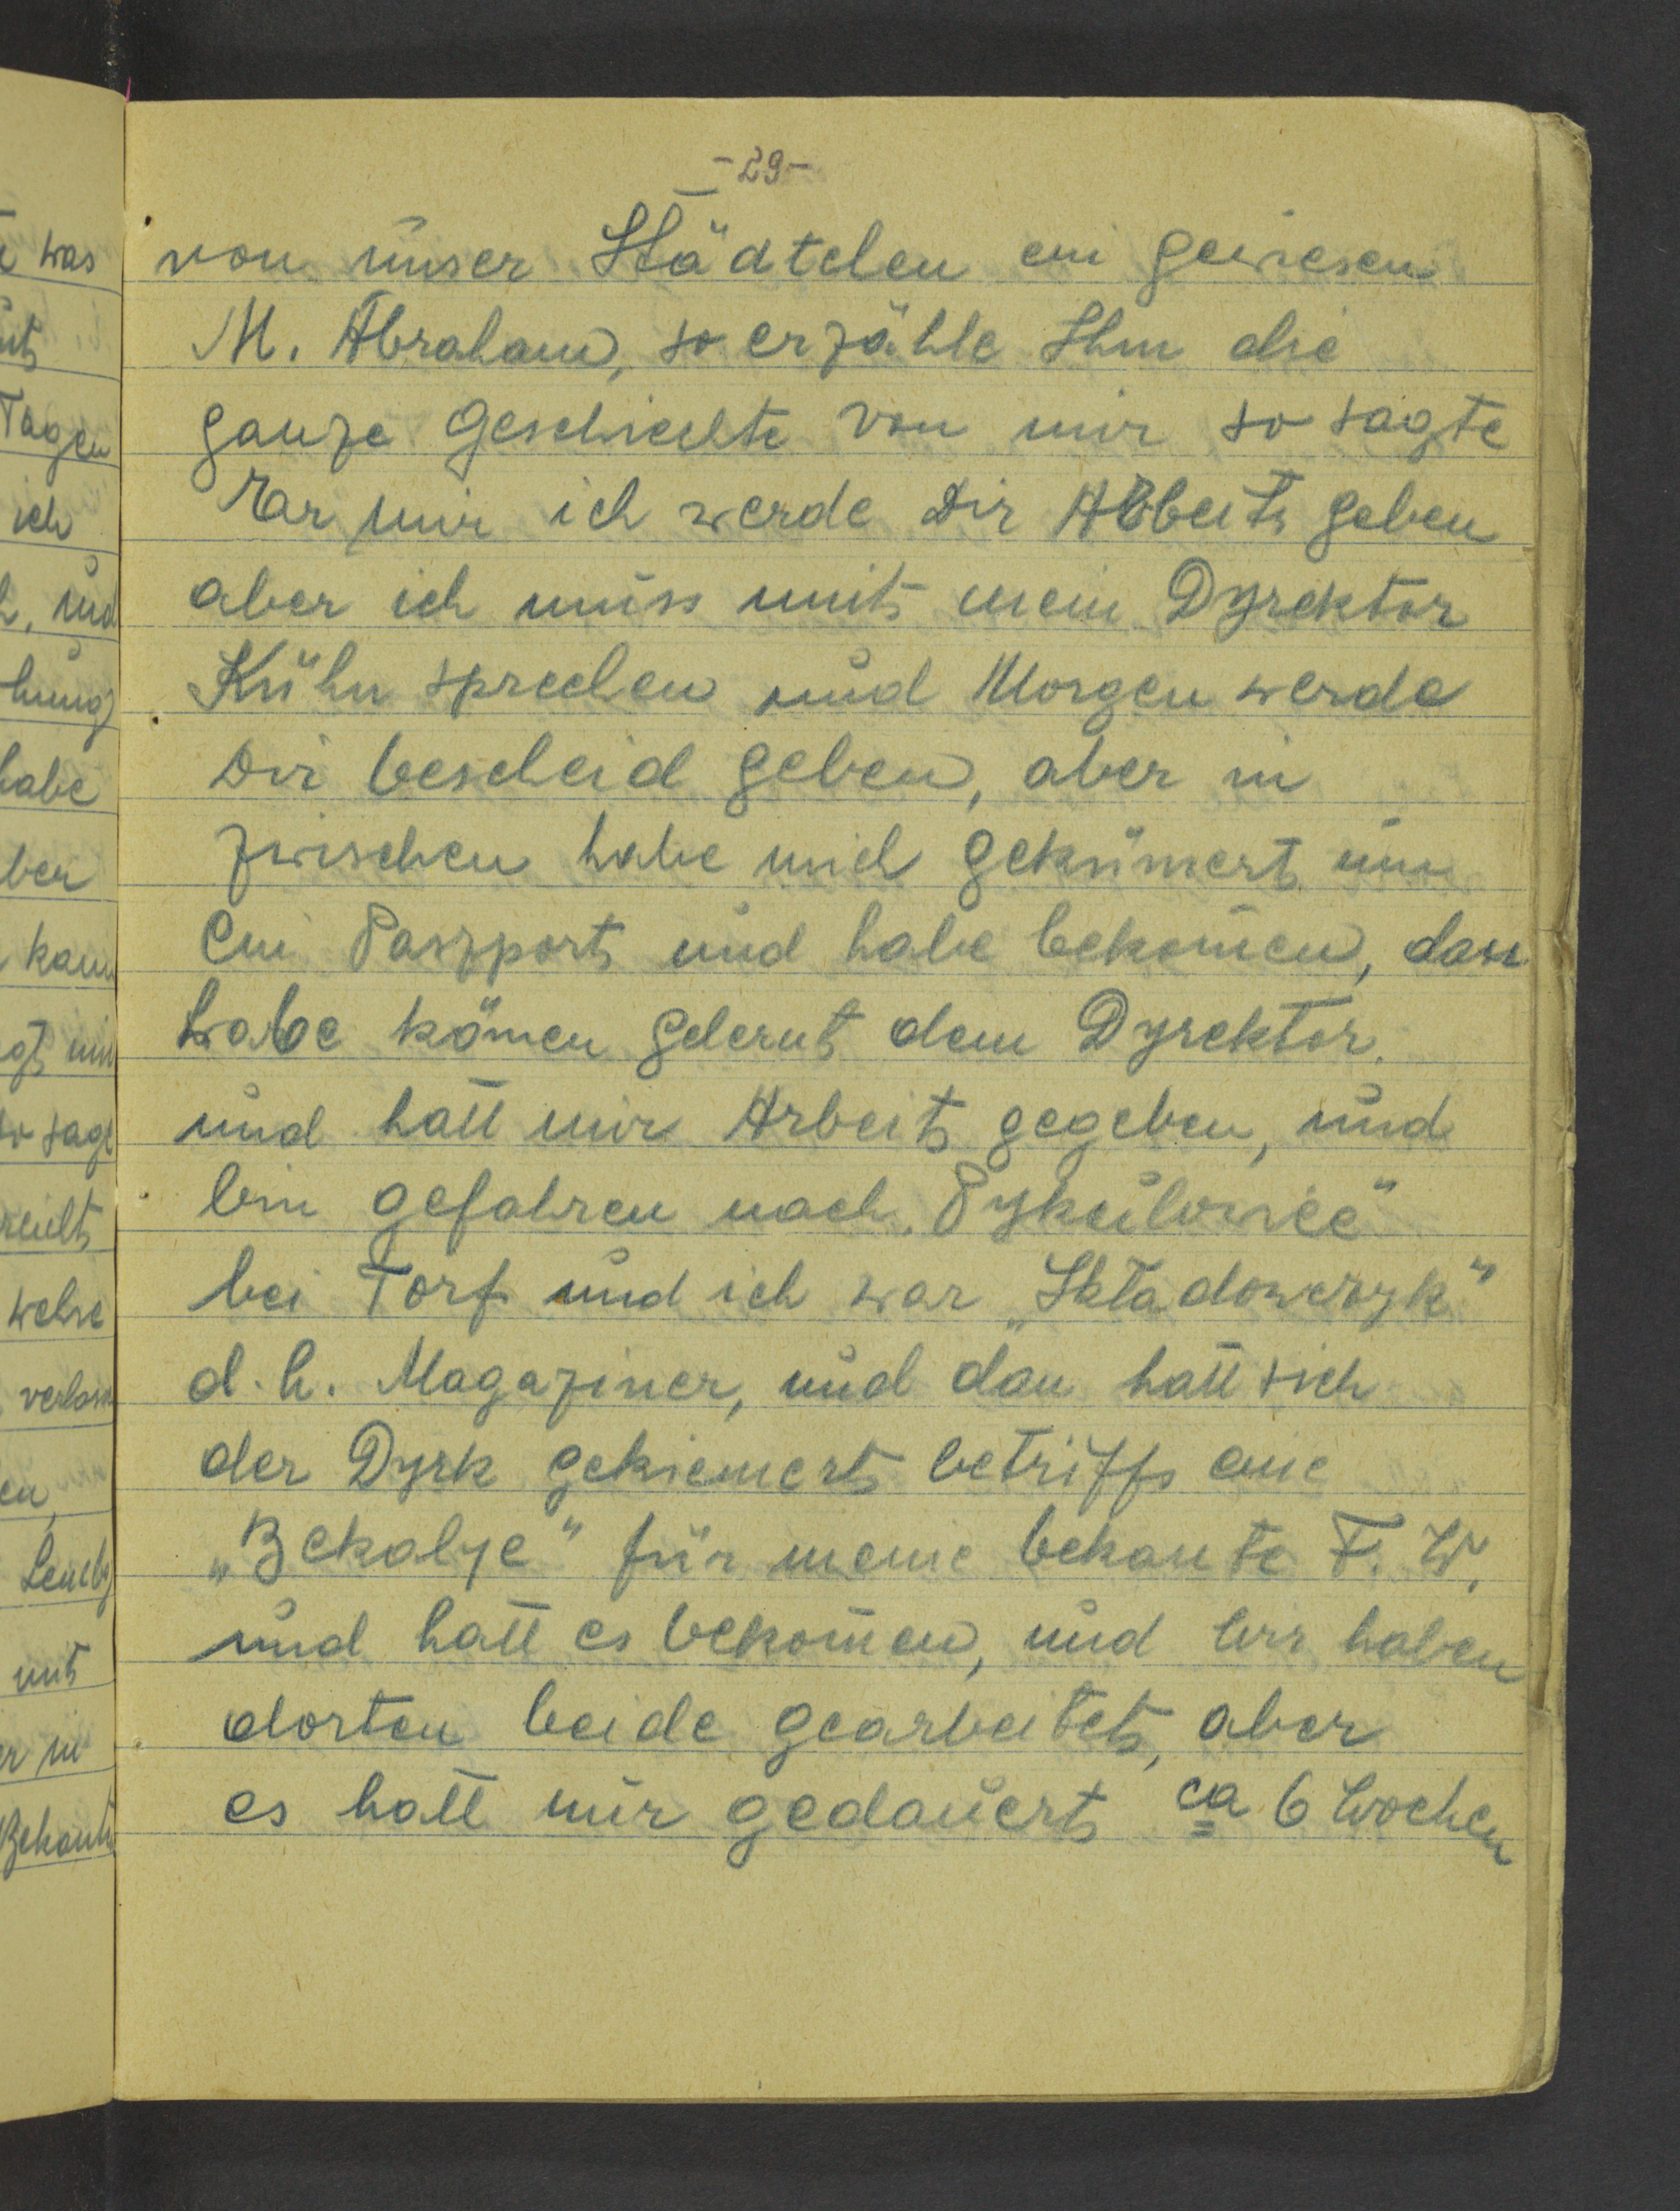 -29-
von unser Städtchen ein gewiesen
M. Abraham, so erzähle Ihm die
ganze Geschichte von mir so sagte
Ear mir ich werde Dir Arbeit geben
aber ich muss mit mein Dyrektor
Kühn sprechen und Morgen werde
Dir bescheid geben, aber in
zwischen habe mich gekümert um
Ein Paszport und habe bekom̄en, dan
habe könen gelernt dem Dyrektor.
und hatt mir Arbeit gegeben, und
bin gefahren nach „Pykulowice"
bei Torf und ich war „Skladowczyk"
d.h. Magaziner, und dan hatt sich
der Dyrk gekiemert betriffs eine
„Bekalye" für meine bekante F. W.
und hatt es bekom̄en, und wir haben
dorten beide gearbeitet, aber
es hatt mir gedauert ca 6 Wochen
was
Tagen
ich
und
habe
ber
kam
so sagt
verlassen
mit
in
Bekante